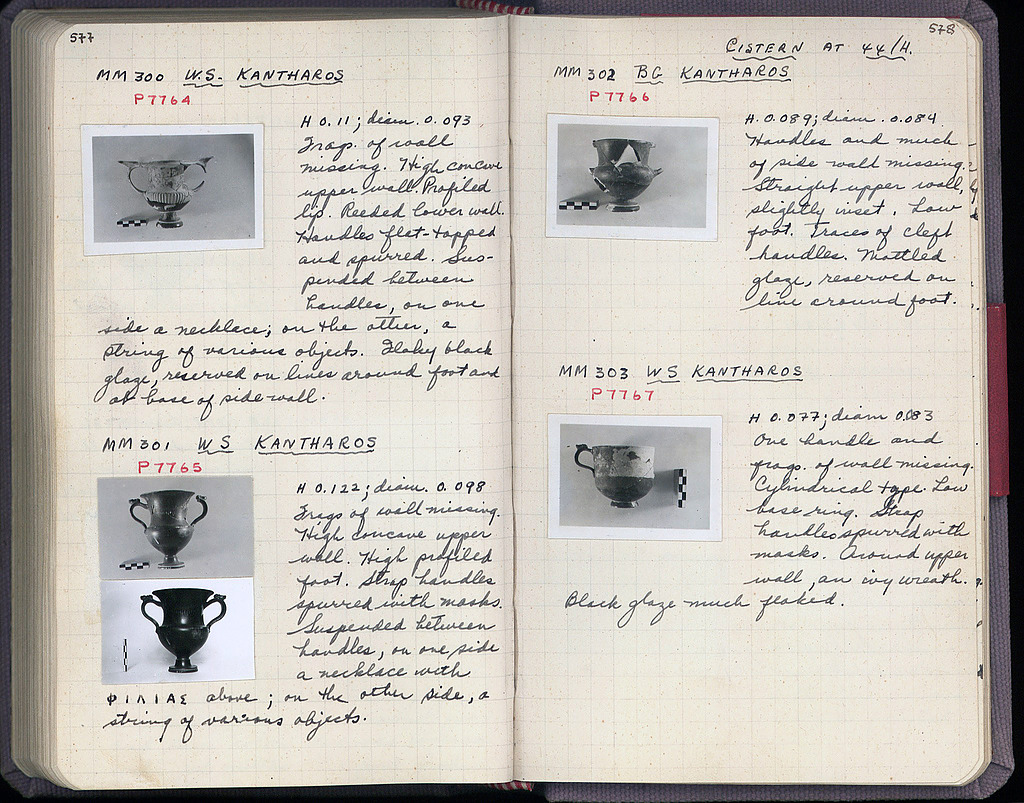 577
MM 300 W.S. KANTHAROS
P7764
H 0.11; diam. 0.093
Frags. of wall
missing. High concave
upper wall. Profiled
lip. Reeded lower wall.
Handles flat-topped
and spurred. Sus-
pended between
handles, on one
side a necklace; on the other, a
string of various objects. Flaky black
glaze, reserved on lines around foot and
at base of side wall.
MM 301 WS KANTHAROS
P7765
H 0.122; diam. 0.098
Frags of wall missing.
High concave upper
wall. High profiled
foot. Strap handles
spurred with masks.
Suspended between
handles, on one side
a necklace with
ΦΙΛΙΑΣ above; on the other side, a
string of various objects.
578
CISTERN AT 44/H.
MM 302 BG KANTHAROS
P7766
H. 0.089; diam. 0.084
Handles and much
of side wall missing.
Straight upper wall,
slightly inset. Low
foot. Traces of cleft
handles. Mottled
glaze, reserved on
line around foot.
MM 303 WS KANTHAROS
P7767
H 0.077; diam 0.083
One handle and
frags. of wall missing.
Cylindrical type. Low
base ring. Strap
handles spurred with
masks. Around upper
wall, an ivy wreath.
Black glaze much flaked.